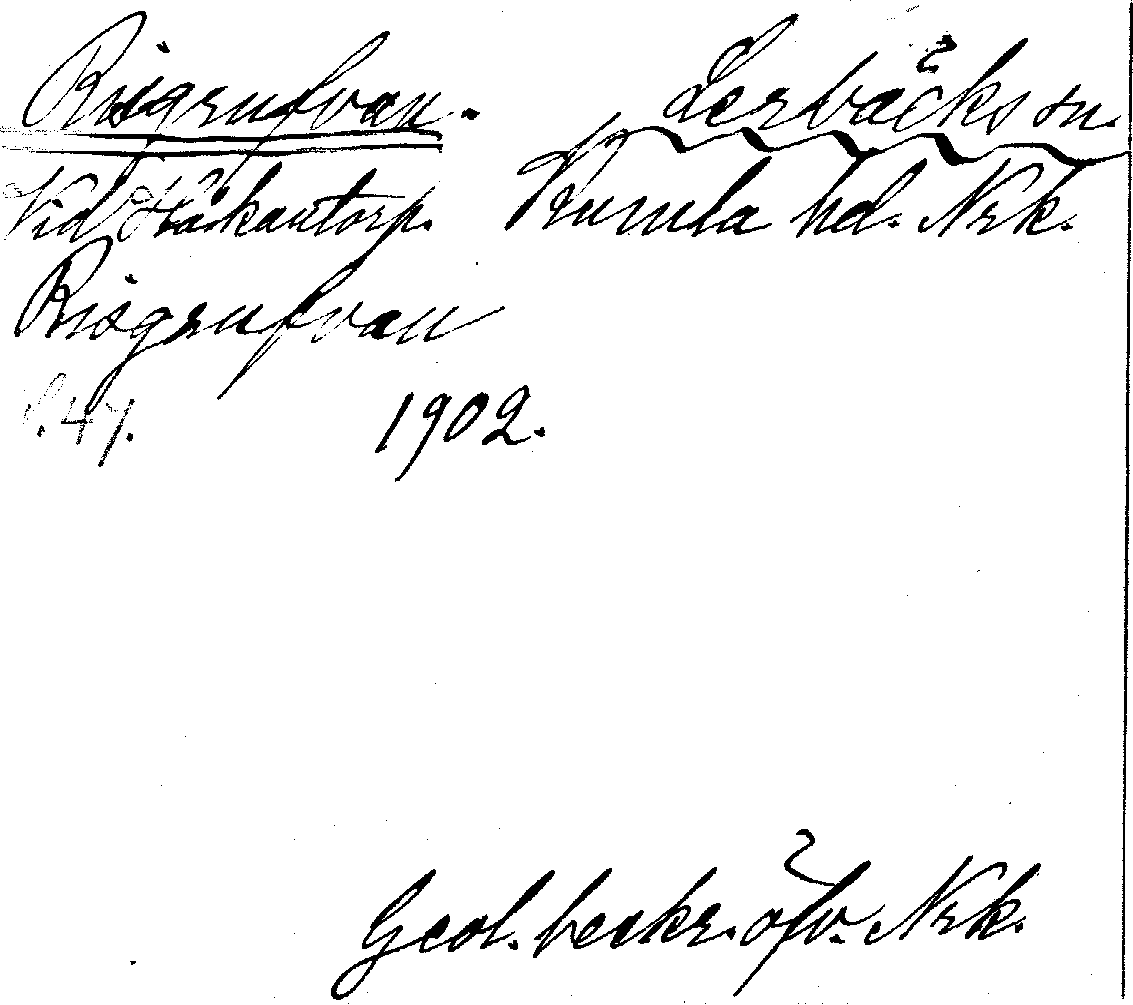 Risgrufvan. Lerbäcks sn.
Vid Håkantorp. Kumla hd. Nrk.
Risgrufvan
S. 47. 1902.
Geol. beskr. öfv. Nrk.